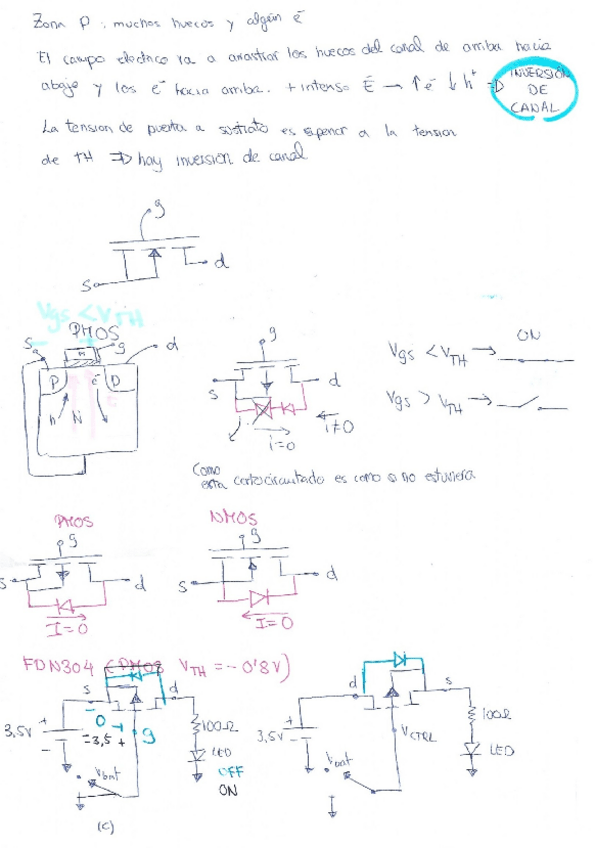 Zona P : muchos huecos y algún e⁻
El campo electrico va a arrastrar los huecos del canal de arriba hacia
abajo y los e⁻ hacia arriba. + intenso E → ↑e⁻ ↓h⁺ ⇒ INVERSIÓN DE CANAL
La tension de puerta a sustrato es superior a la tension
de TH ⇒ hay inversion de canal
g
s d
Vgs < VTH
PMOS
s g d
P e⁻ D
h N
g
s d
i=0 i≠0
Vgs < VTH → ON
Vgs > VTH →
Como
esta cortocircuitado es como si no estuviera
PMOS NMOS
g g
s d s d
I=0 I=0
FDN304 (PMOS VTH = -0'8V)
s d
3,5V + -
- 0 +
-3,5 +
g
100Ω
LED
OFF
ON
Vbat
(c)
d s
3,5V + -
VCTRL
100Ω
LED
Vbat